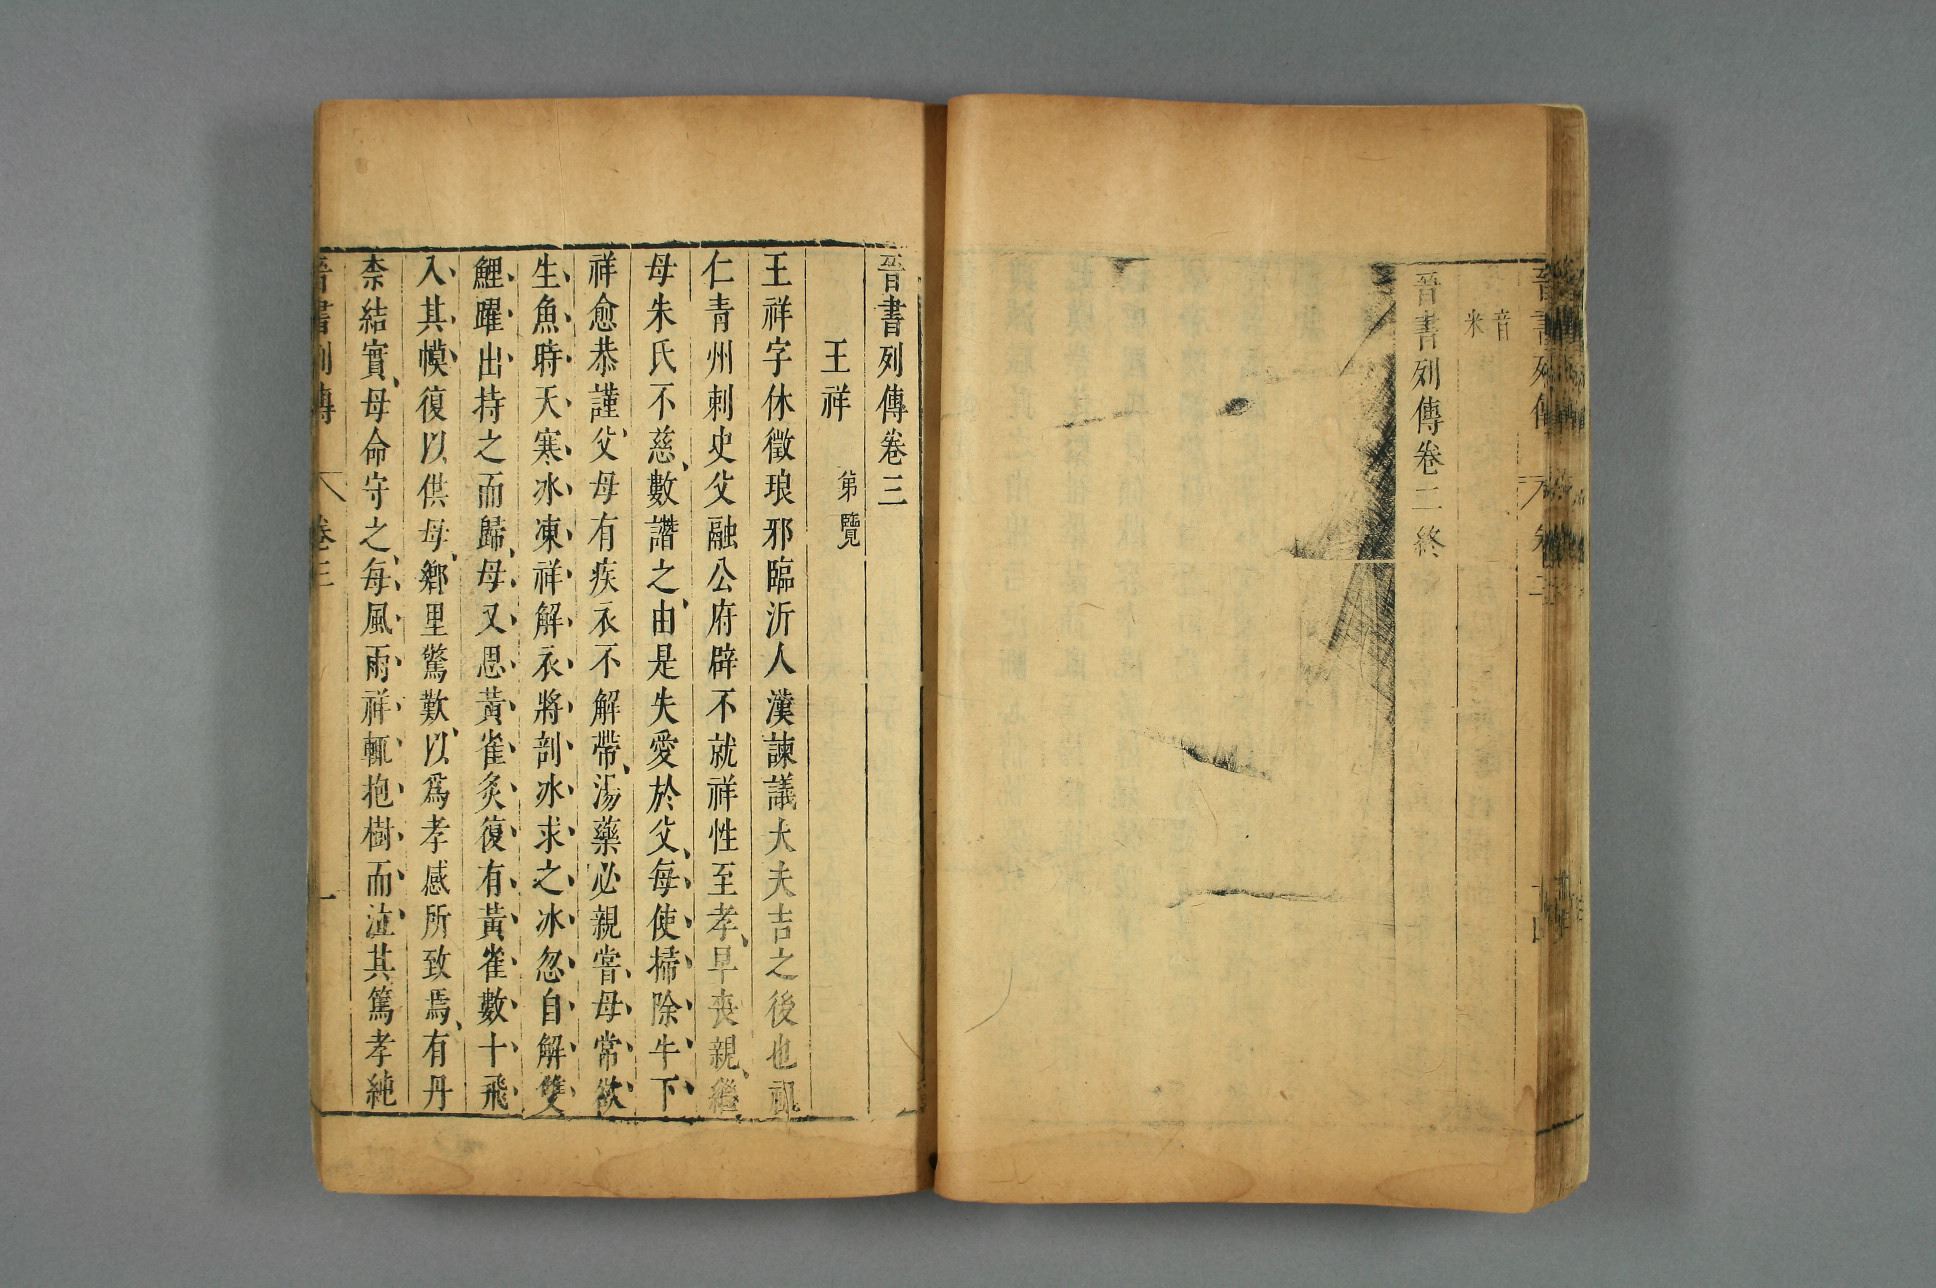 音
米
晉書列傳卷二終
晉書列傳卷三
王祥
弟覽
王祥字休徵琅邪臨沂人漢諫議大夫吉之後也祖
仁青州刺史父融公府辟不就祥性至孝、早喪親、繼
母朱氏不慈、數譖之、由是失愛於父、每使掃除牛下
祥愈恭謹、父母有疾衣不解帶、湯藥必親嘗、母常欲
生魚時天寒冰凍祥解衣將剖冰求之冰忽自解雙
鯉躍出持之而歸、母又思黃雀炙復有黃雀數十飛
入其幙復以供母、鄉里驚歎、以爲孝感所致焉、有丹
柰結實、母命守之、每風雨祥輒抱樹而泣其篤孝純
晉書列傳
卷三
一